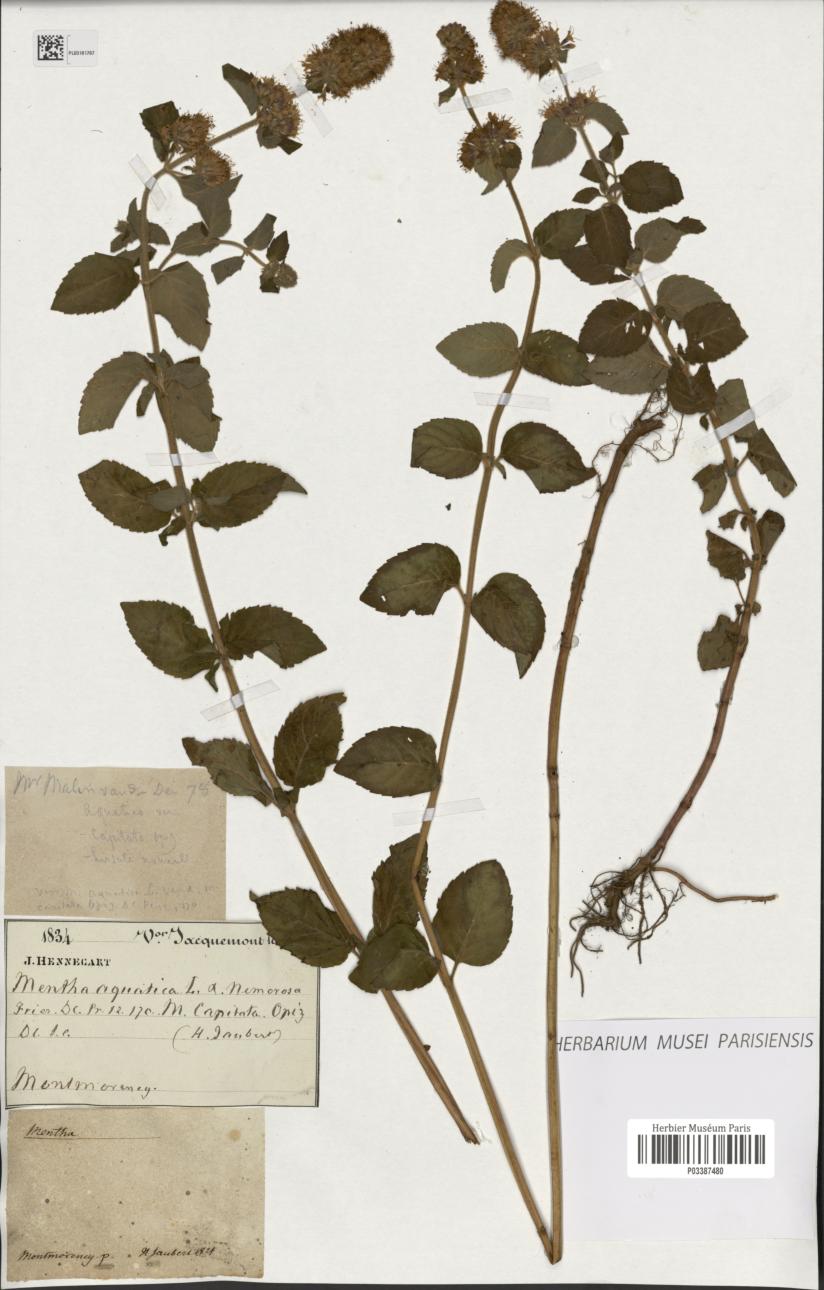 PL00161707
Mr Malinvaud Dec 75
aquatica
- Capitata
- hirsuta
aquatica L.
capitata Opiz D.C.
1834 Vor Jacquemont
J. HENNECART
Mentha aquatica L. α. Nemorosa
Fries. DC. Pr. 12. 170. M. Capitata. Opiz
DC. l.c. (H. Jaubert)
Montmorency.
Mentha
Montmorency p. H Jaubert 1834
HERBARIUM MUSEI PARISIENSIS
Herbier Muséum Paris
P03387480